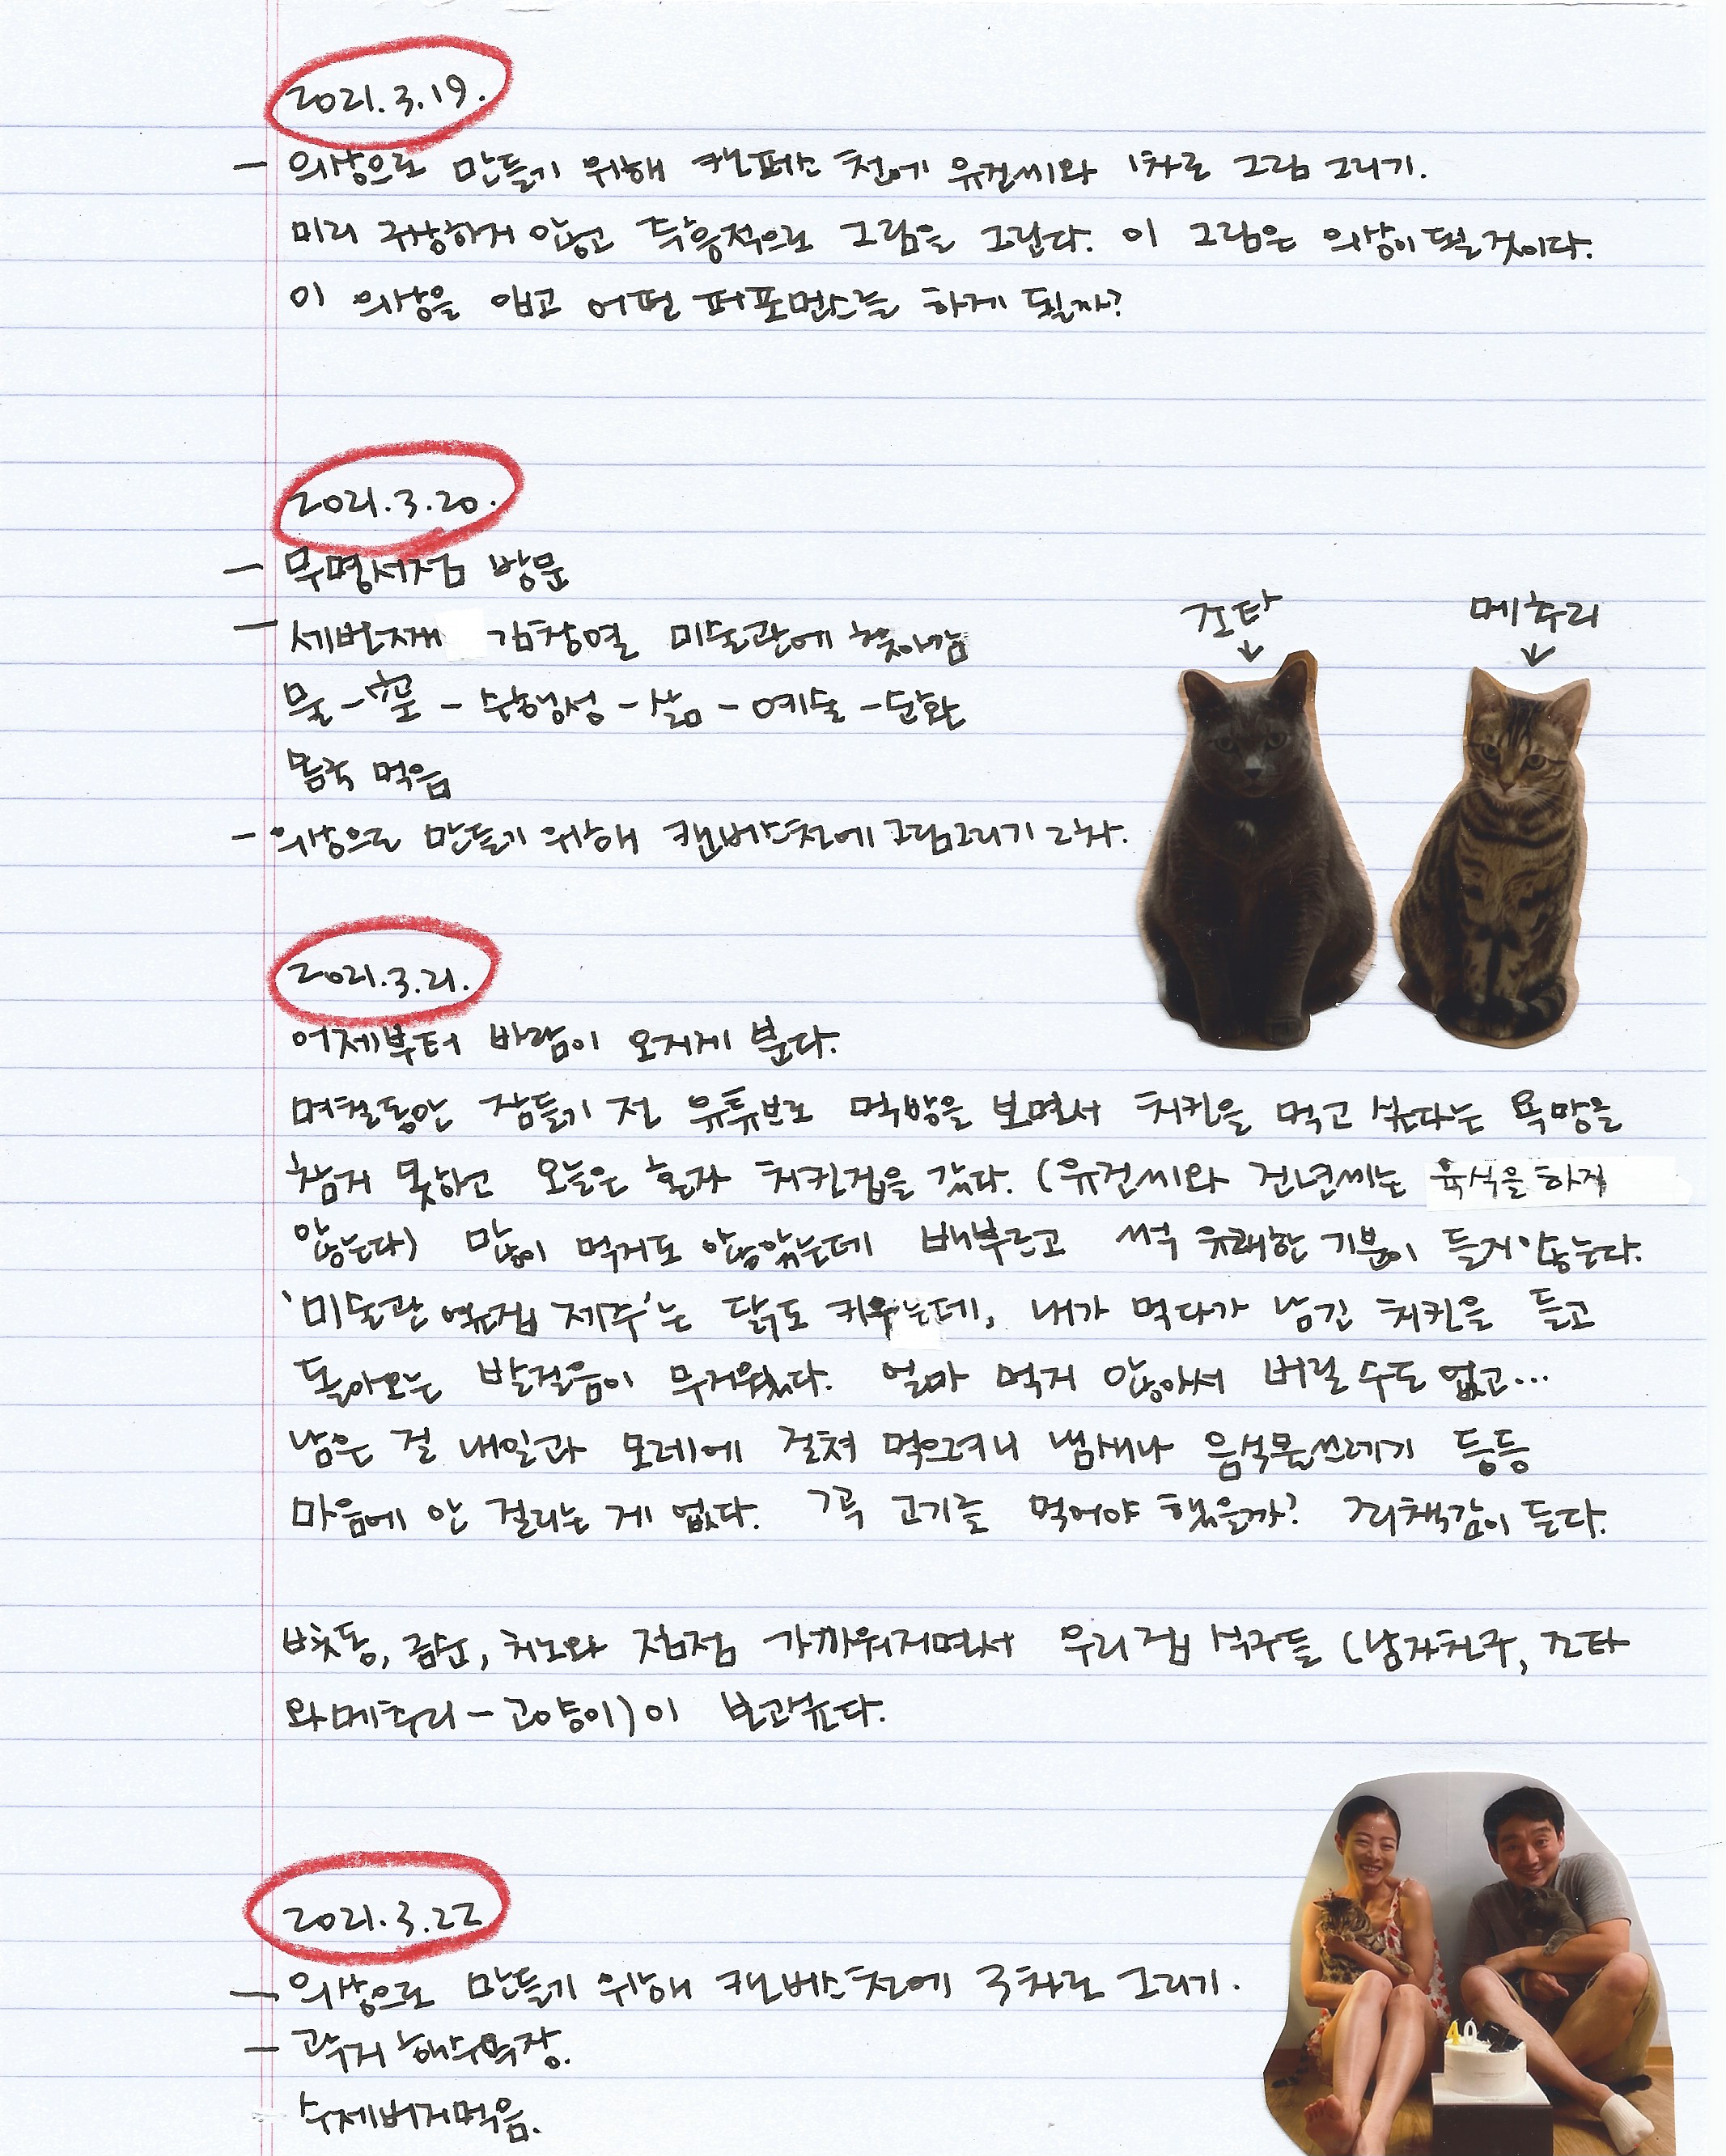 2021.3.19.
- 의상으로 만들기 위해 캔퍼스 천에 유건씨와 1차로 그림 그리기.
미리 구상하지 않고 즉흥적으로 그림을 그린다. 이 그림은 의상이 될것이다.
이 의상을 입고 어떤 퍼포먼스를 하게 될까?
2021.3.20.
- 무명서점 방문
- 세번째 김창열 미술관에 찾아감
조타 메추리
물 - - 수행성 - 삶 - 예술 - 순환
몸국 먹음
- 의상으로 만들기 위해 캔버스천에 그림그리기 2차.
2021.3.21.
어제부터 바람이 오지게 분다.
며칠동안 잠들기 전 유튜브로 먹방을 보면서 치킨을 먹고 싶다는 욕망을
참지 못하고 오늘은 혼자 치킨집을 갔다. (유건씨와 건년씨는 육식을 하지
않는다) 많이 먹지도 않았는데 배부르고 썩 유쾌한 기분이 들지 않는다.
'미술관 옆집 제주'는 닭도 키우는데, 내가 먹다가 남긴 치킨을 들고
돌아오는 발걸음이 무거웠다. 얼마 먹지 않아서 버릴 수도 없고...
남은 걸 내일과 모레에 걸쳐 먹으려니 냄새나 음식물쓰레기 등등
마음에 안 걸리는 게 없다. 꼭 고기를 먹어야 했을까? 죄책감이 든다.
벼첫동, 금순, 치노와 점점 가까워지면서 우리집 식구들 (남자친구, 조타
와메추리 - 고양이)이 보고싶다.
2021.3.22
- 의상으로 만들기 위해 캔버스천에 3차로 그리기.
- 곽지 해수욕장.
수제버거먹음.
40